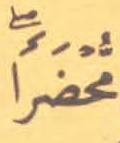 مُّحْضَرًا ۖ